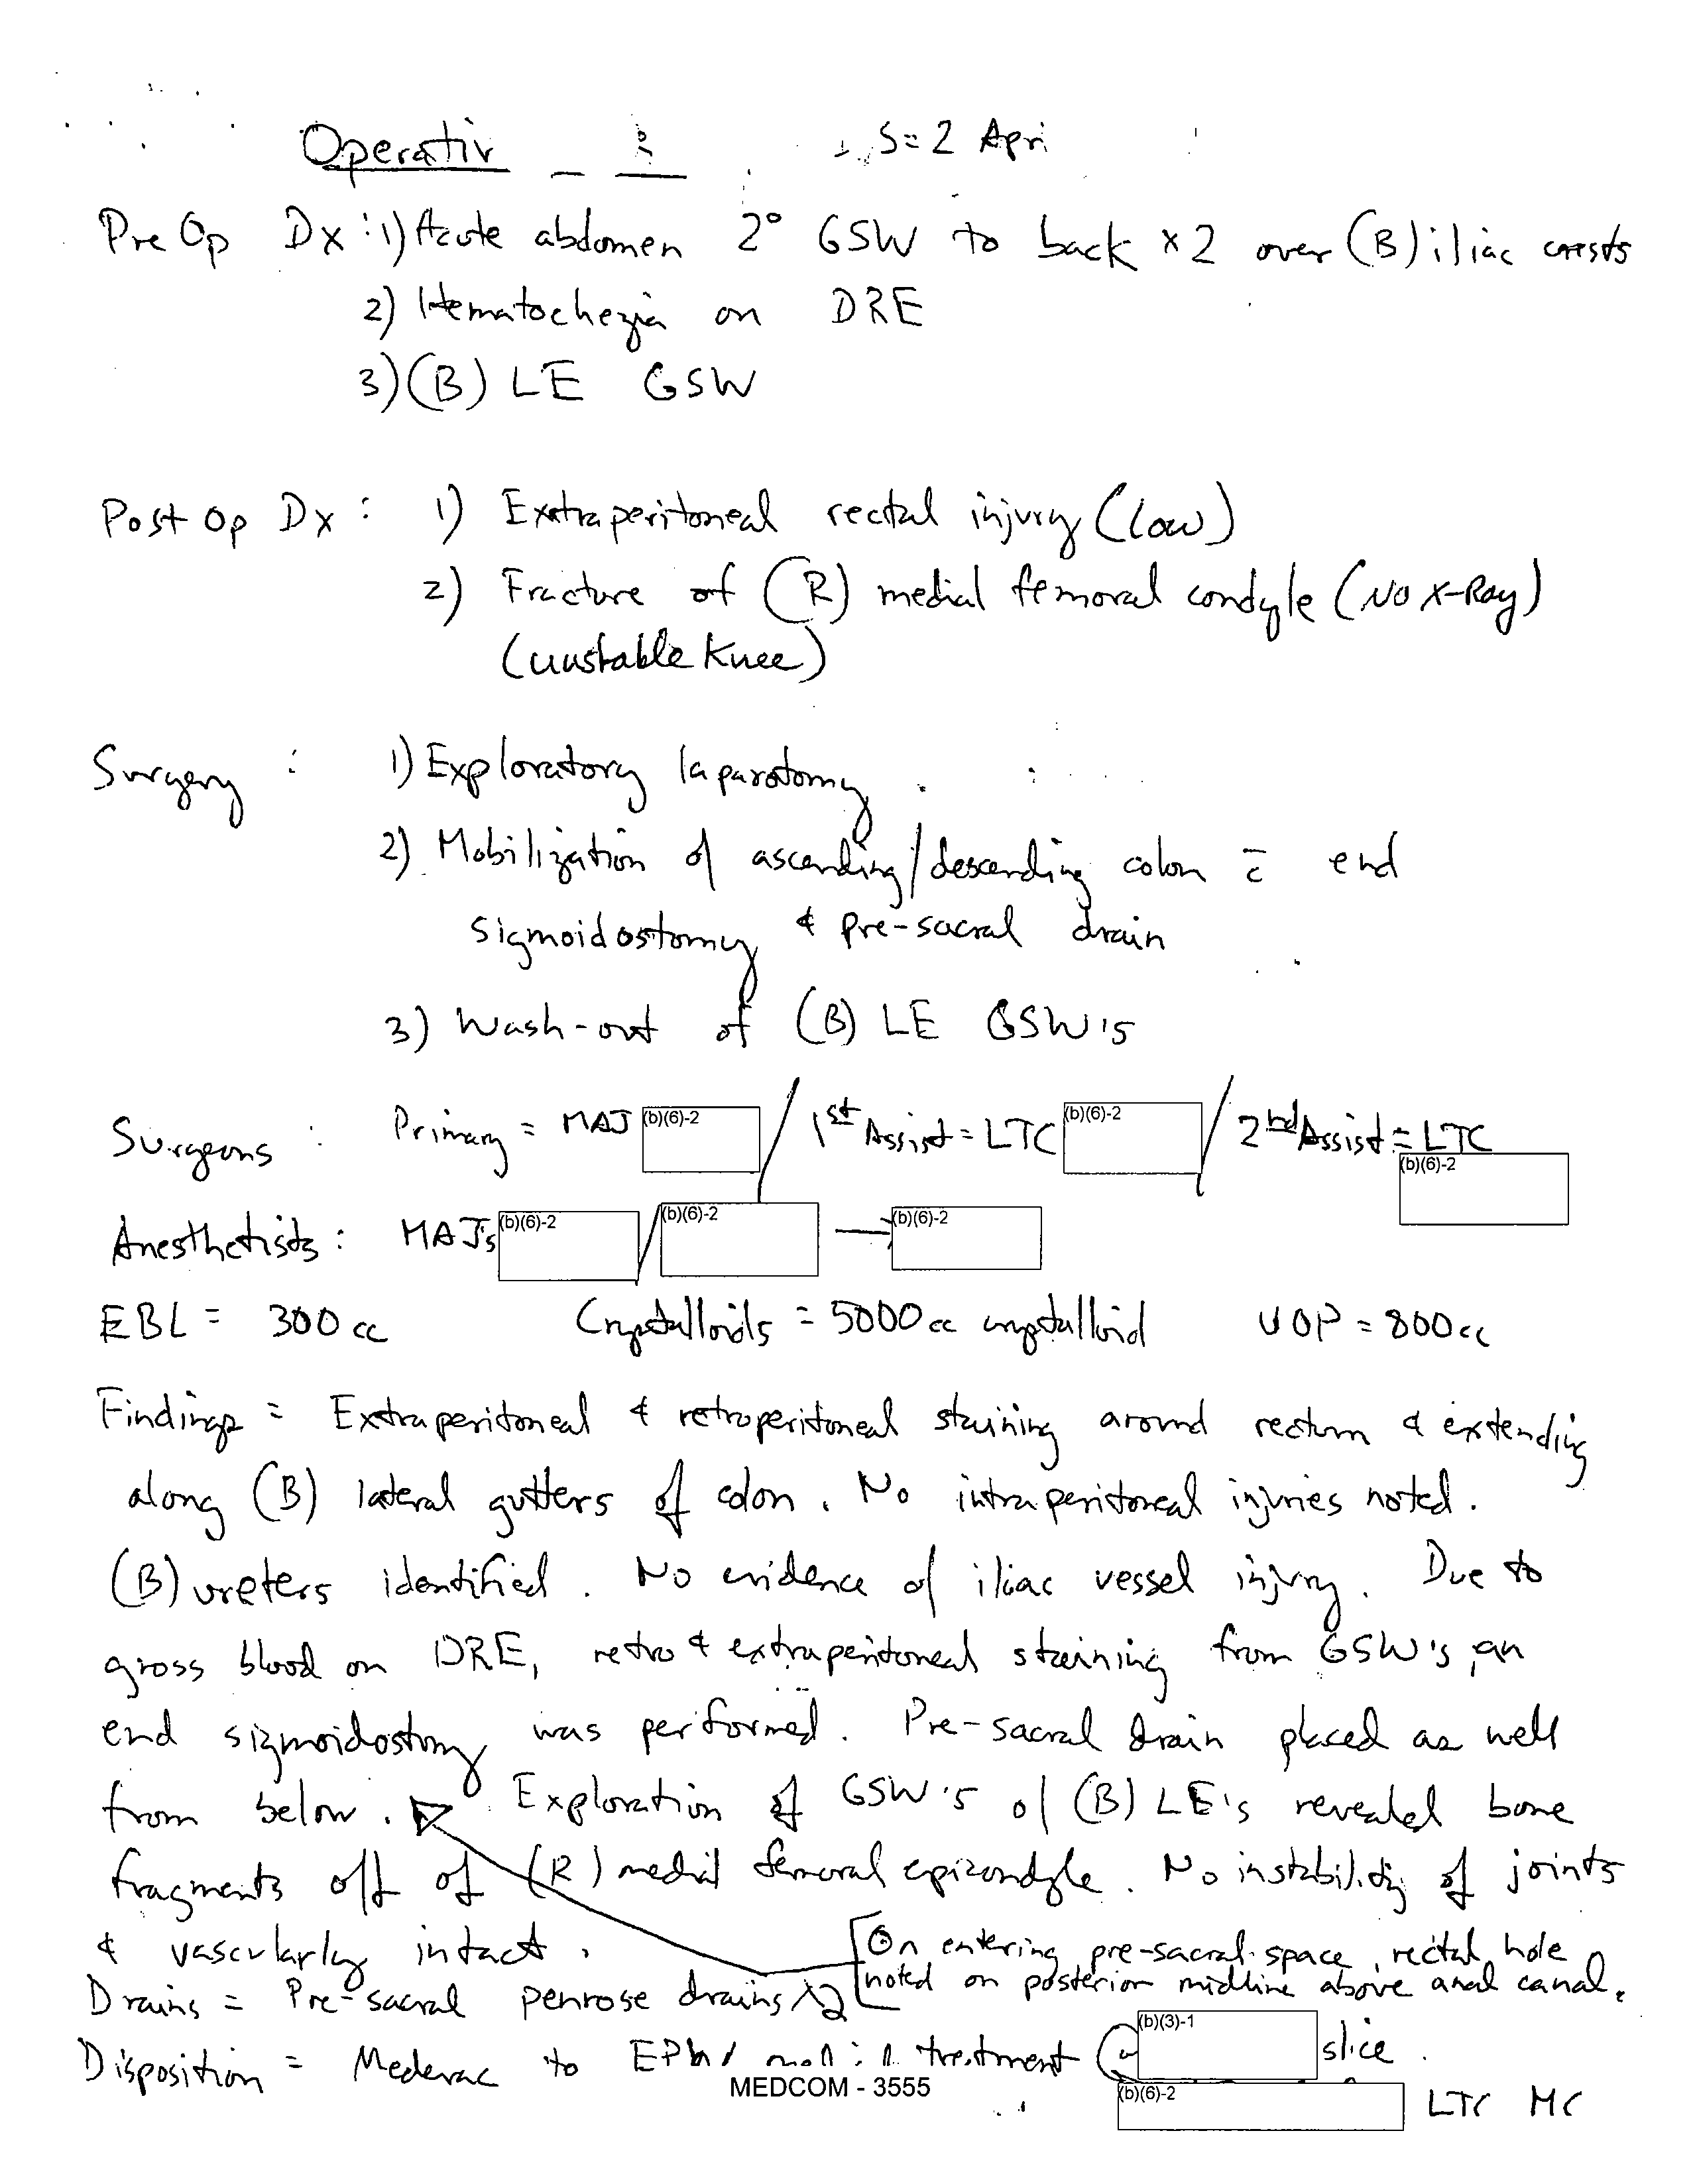 Operativ S=2 Apri
Pre Op Dx : 1) Acute abdomen 2° GSW to back x 2 over (B) iliac crests
2) Hematochezia on DRE
3) (B) LE GSW
Post Op Dx : 1) Extraperitoneal rectal injury (low)
2) Fracture of (R) medial femoral condyle (No X-Ray)
(unstable knee)
Surgery : 1) Exploratory laparotomy
2) Mobilization of ascending/descending colon c̄ end
sigmoidostomy & pre-sacral drain
3) Wash-out of (B) LE GSW's
Surgeons : Primary = MAJ (b)(6)-2 / 1st Assist = LTC (b)(6)-2 / 2nd Assist = LTC
(b)(6)-2
Anesthetists : MAJ's (b)(6)-2 / (b)(6)-2 → (b)(6)-2
EBL = 300 cc Crystalloids = 5000 cc crystalloid UOP = 800 cc
Findings = Extraperitoneal & retroperitoneal staining around rectum & extending
along (B) lateral gutters of colon. No intraperitoneal injuries noted.
(B) ureters identified. No evidence of iliac vessel injury. Due to
gross blood on DRE, retro & extraperitoneal staining from GSW's, an
end sigmoidostomy was performed. Pre-sacral drain placed as well
from below. Exploration of GSW's of (B) LE's revealed bone
fragments off of (R) medial femoral epicondyle. No instability of joints
& vascularly intact.
[On entering pre-sacral space, rectal hole
noted on posterior midline above anal canal.
Drains = Pre-sacral penrose drains x2
Disposition = Medevac to EPW treatment (b)(3)-1 slice.
MEDCOM - 3555
(b)(6)-2 LTC MC